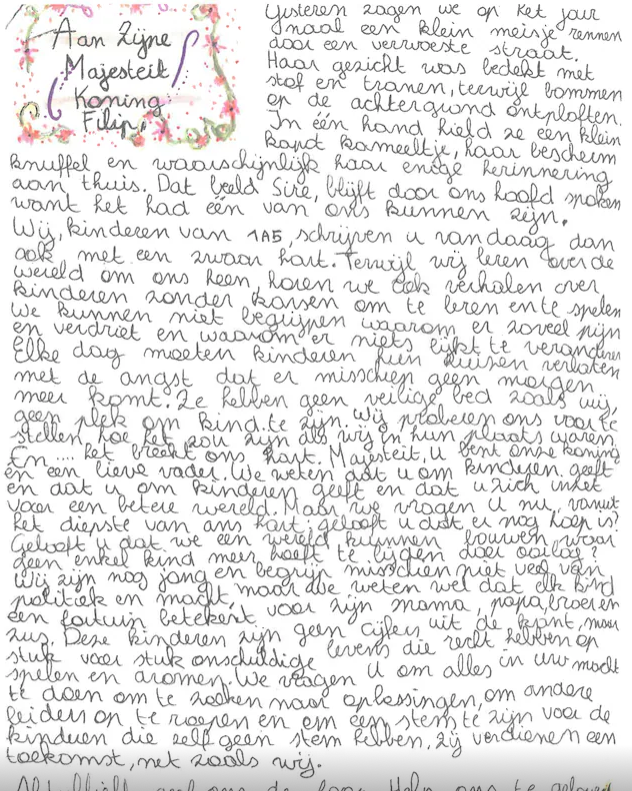 Aan Zijne
Majesteit
Koning
Filip,
Gisteren zagen we op het jour
naal een klein meisje rennen
door een verwoeste straat.
Haar gezicht was bedekt met
stof en tranen, terwijl bommen
op de achtergrond ontploften.
In één hand hield ze een klein
kapot kameeltje, haar bescheim
knuffel en waarschijnlijk haar enige herinnering
aan thuis. Dat beeld Sire, blijft door ons hoofd spoken
want het had één van ons kunnen zijn.
Wij, kinderen van 1A5, schrijven u vandaag dan
ook met een zwaar hart. Terwijl wij leren over de
wereld om ons heen, horen we ook verhalen over
kinderen zonder kansen om te leren en te spelen
We kunnen niet begrijpen waarom er zoveel pijn
en verdriet en waarom er niets lijkt te veranderen
Elke dag moeten kinderen hun huizen verlaten
met de angst dat er misschien geen morgen
meer komt. Ze hebben geen veilig bed zoals wij,
geen plek om kind te zijn. Wij proberen ons voor te
stellen hoe het zou zijn als wij in hun plaats waren.
En .... het breekt ons hart. Majesteit, u bent onze koning
én een lieve vader. We weten dat u om kinderen geeft
en dat u om kinderen geeft en dat u zich inzet
voor een betere wereld. Maar we vragen u nu, vanuit
het diepste van ons hart: gelooft u dat er nog hoop is?
Gelooft u dat we een wereld kunnen bouwen waar
geen enkel kind meer hoeft te lijden door oorlog?
Wij zijn nog jong en begrijp misschien niet veel van
politiek en macht, maar we weten wel dat elk kind
een fortuin betekent voor zijn mama, papa, broer en
zus. Deze kinderen zijn geen cijfers uit de krant, maar
stuk voor stuk onschuldige levens die recht hebben op
spelen en dromen. We vragen u om alles in uw macht
te doen om te zoeken naar oplossingen, om andere
leiders op te roepen en om een stem te zijn voor de
kinderen die zelf geen stem hebben, zij verdienen een
toekomst, net zoals wij.